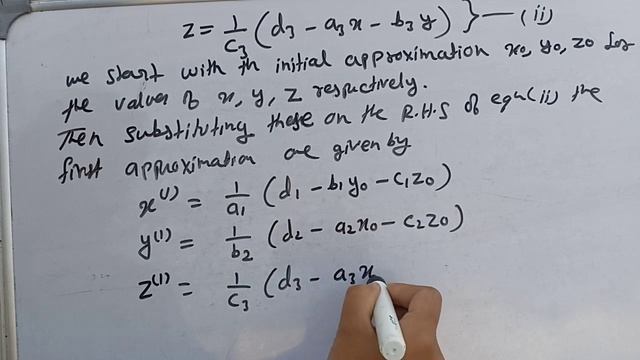 z = 1/c₃ (d₃ - a₃x - b₃y) } — (ii)
we start with th initial approximation x₀, y₀, z₀ for
the values of x, y, z respectively.
Then substituting these on the R.H.S of eqn (ii) the
first approximation are given by
x⁽¹⁾ = 1/a₁ (d₁ - b₁y₀ - c₁z₀)
y⁽¹⁾ = 1/b₂ (d₂ - a₂x₀ - c₂z₀)
z⁽¹⁾ = 1/c₃ (d₃ - a₃x